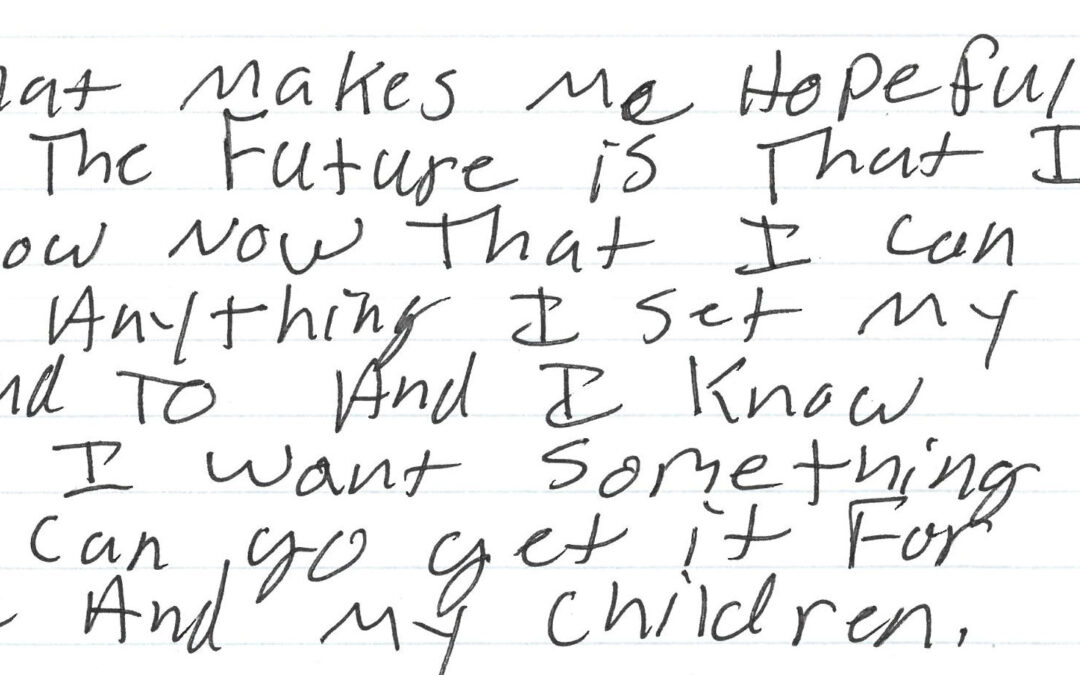 hat makes me Hopeful
The Future is That I
ow Now That I can
Anything I set My
nd To And I Know
I want Something
can go get it For
And My children.